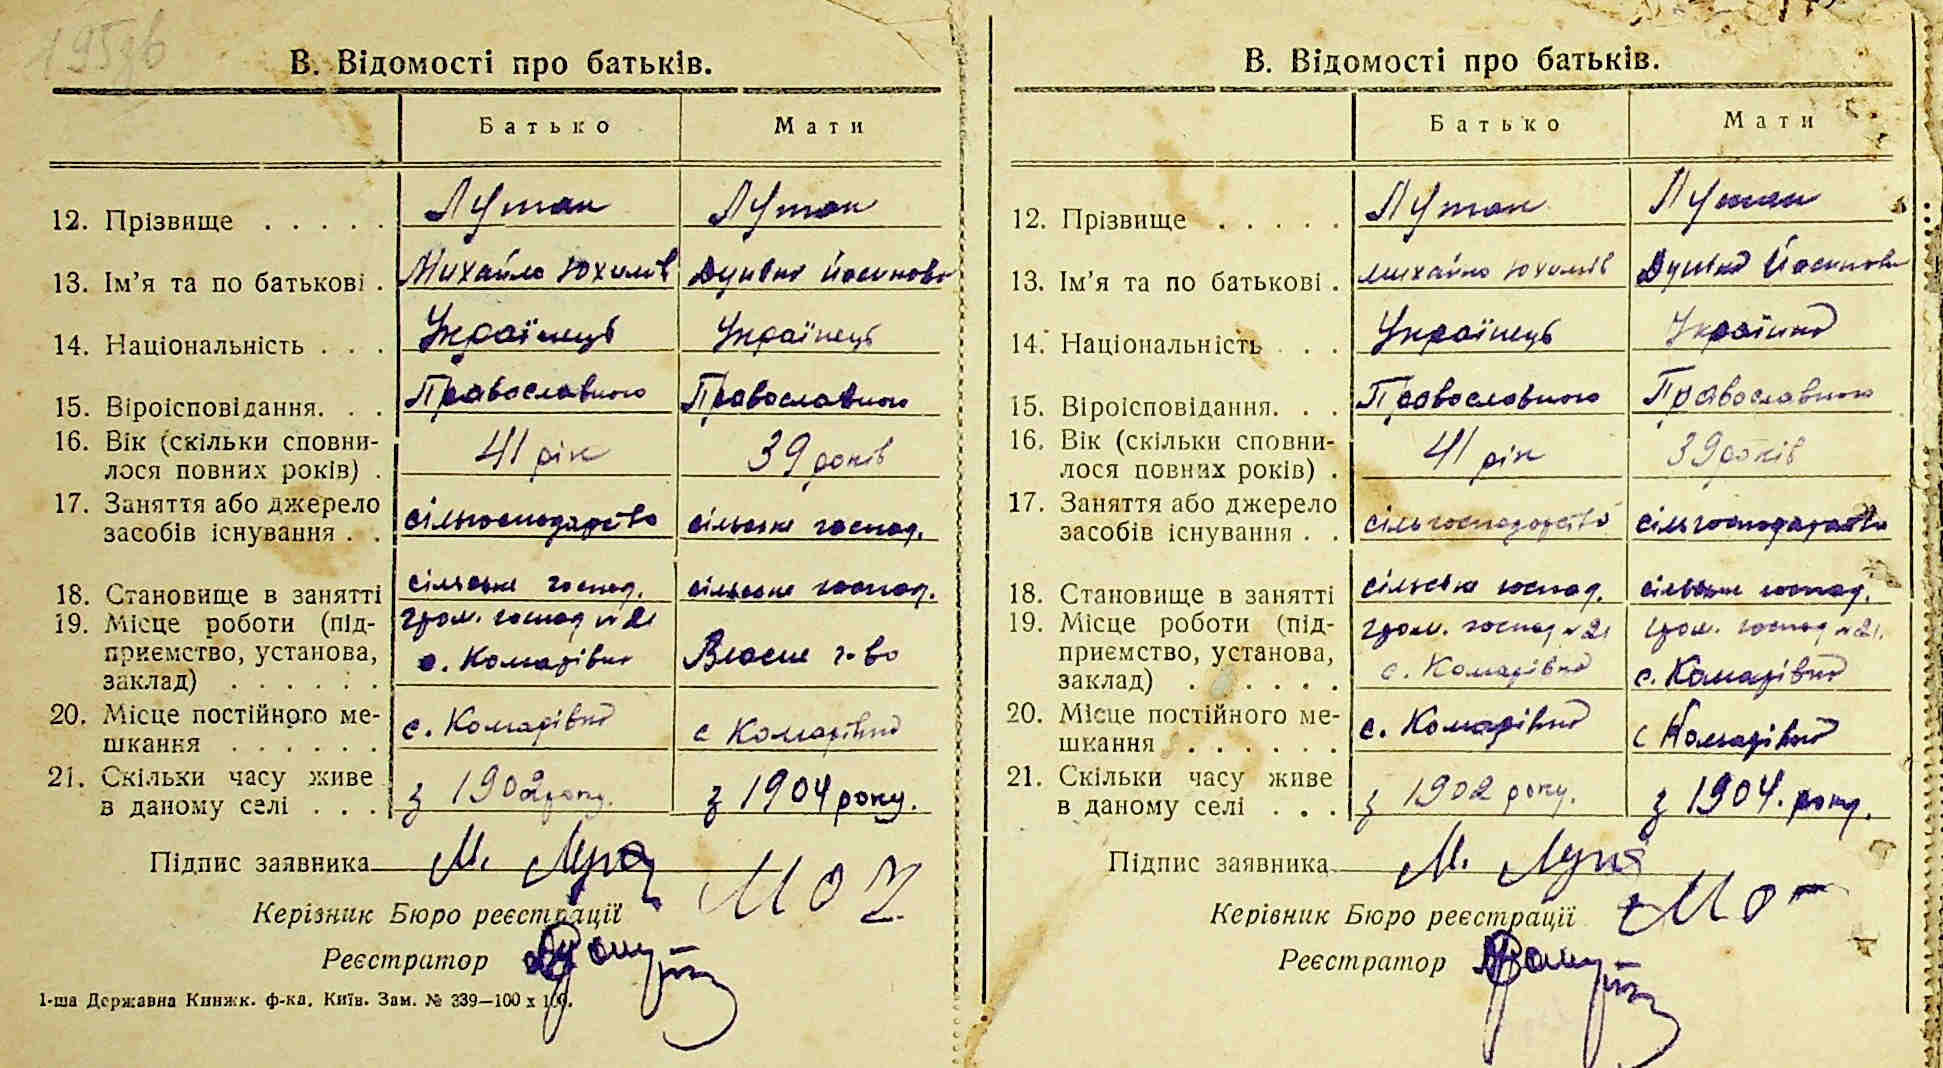 195зв
В. Відомості про батьків.
Батько Мати
12. Прізвище . . . . . Лутак Лутак
13. Ім'я та по батькові . Михайло Юхимів Дуніка Йосипова
14. Національність . . . Українець Українець
15. Віроісповідання. . . Православного Православного
16. Вік (скільки сповни-
лося повних років) . 41 рік 39 років
17. Заняття або джерело
засобів існування . . сільгосподарство сільське господ.
18. Становище в занятті сільське господ. сільське господ.
19. Місце роботи (під- гром. господ №21
приємство, установа, с. Комарівка Власне г-во
заклад) . . . . . .
20. Місце постійного ме-
шкання . . . . . . с. Комарівка с Комарівка
21. Скільки часу живе
в даному селі . . . з 1902 року. з 1904 року.
Підпис заявника М.
Керівник Бюро реєстрації
Реєстратор
1-ша Державна Книжк. ф-ка. Київ. Зам. № 339—100 х 100.
В. Відомості про батьків.
Батько Мати
12. Прізвище . . . . . Лутак Лутак
13. Ім'я та по батькові . Михайло Юхимів Дуніка Йосипова
14. Національність . . . Українець Українка
15. Віроісповідання. . . Православного Православного
16. Вік (скільки сповни-
лося повних років) . 41 рік 39 років
17. Заняття або джерело
засобів існування . . сільгосподарство сільгосподарство
18. Становище в занятті сільське господ. сільське господ.
19. Місце роботи (під- гром. господ №21 гром. господ №21.
приємство, установа, с. Комарівка с. Комарівка
заклад) . . . . . .
20. Місце постійного ме-
шкання . . . . . . с. Комарівка с Комарівка
21. Скільки часу живе
в даному селі . . . з 1902 року. з 1904. року.
Підпис заявника М.
Керівник Бюро реєстрації
Реєстратор